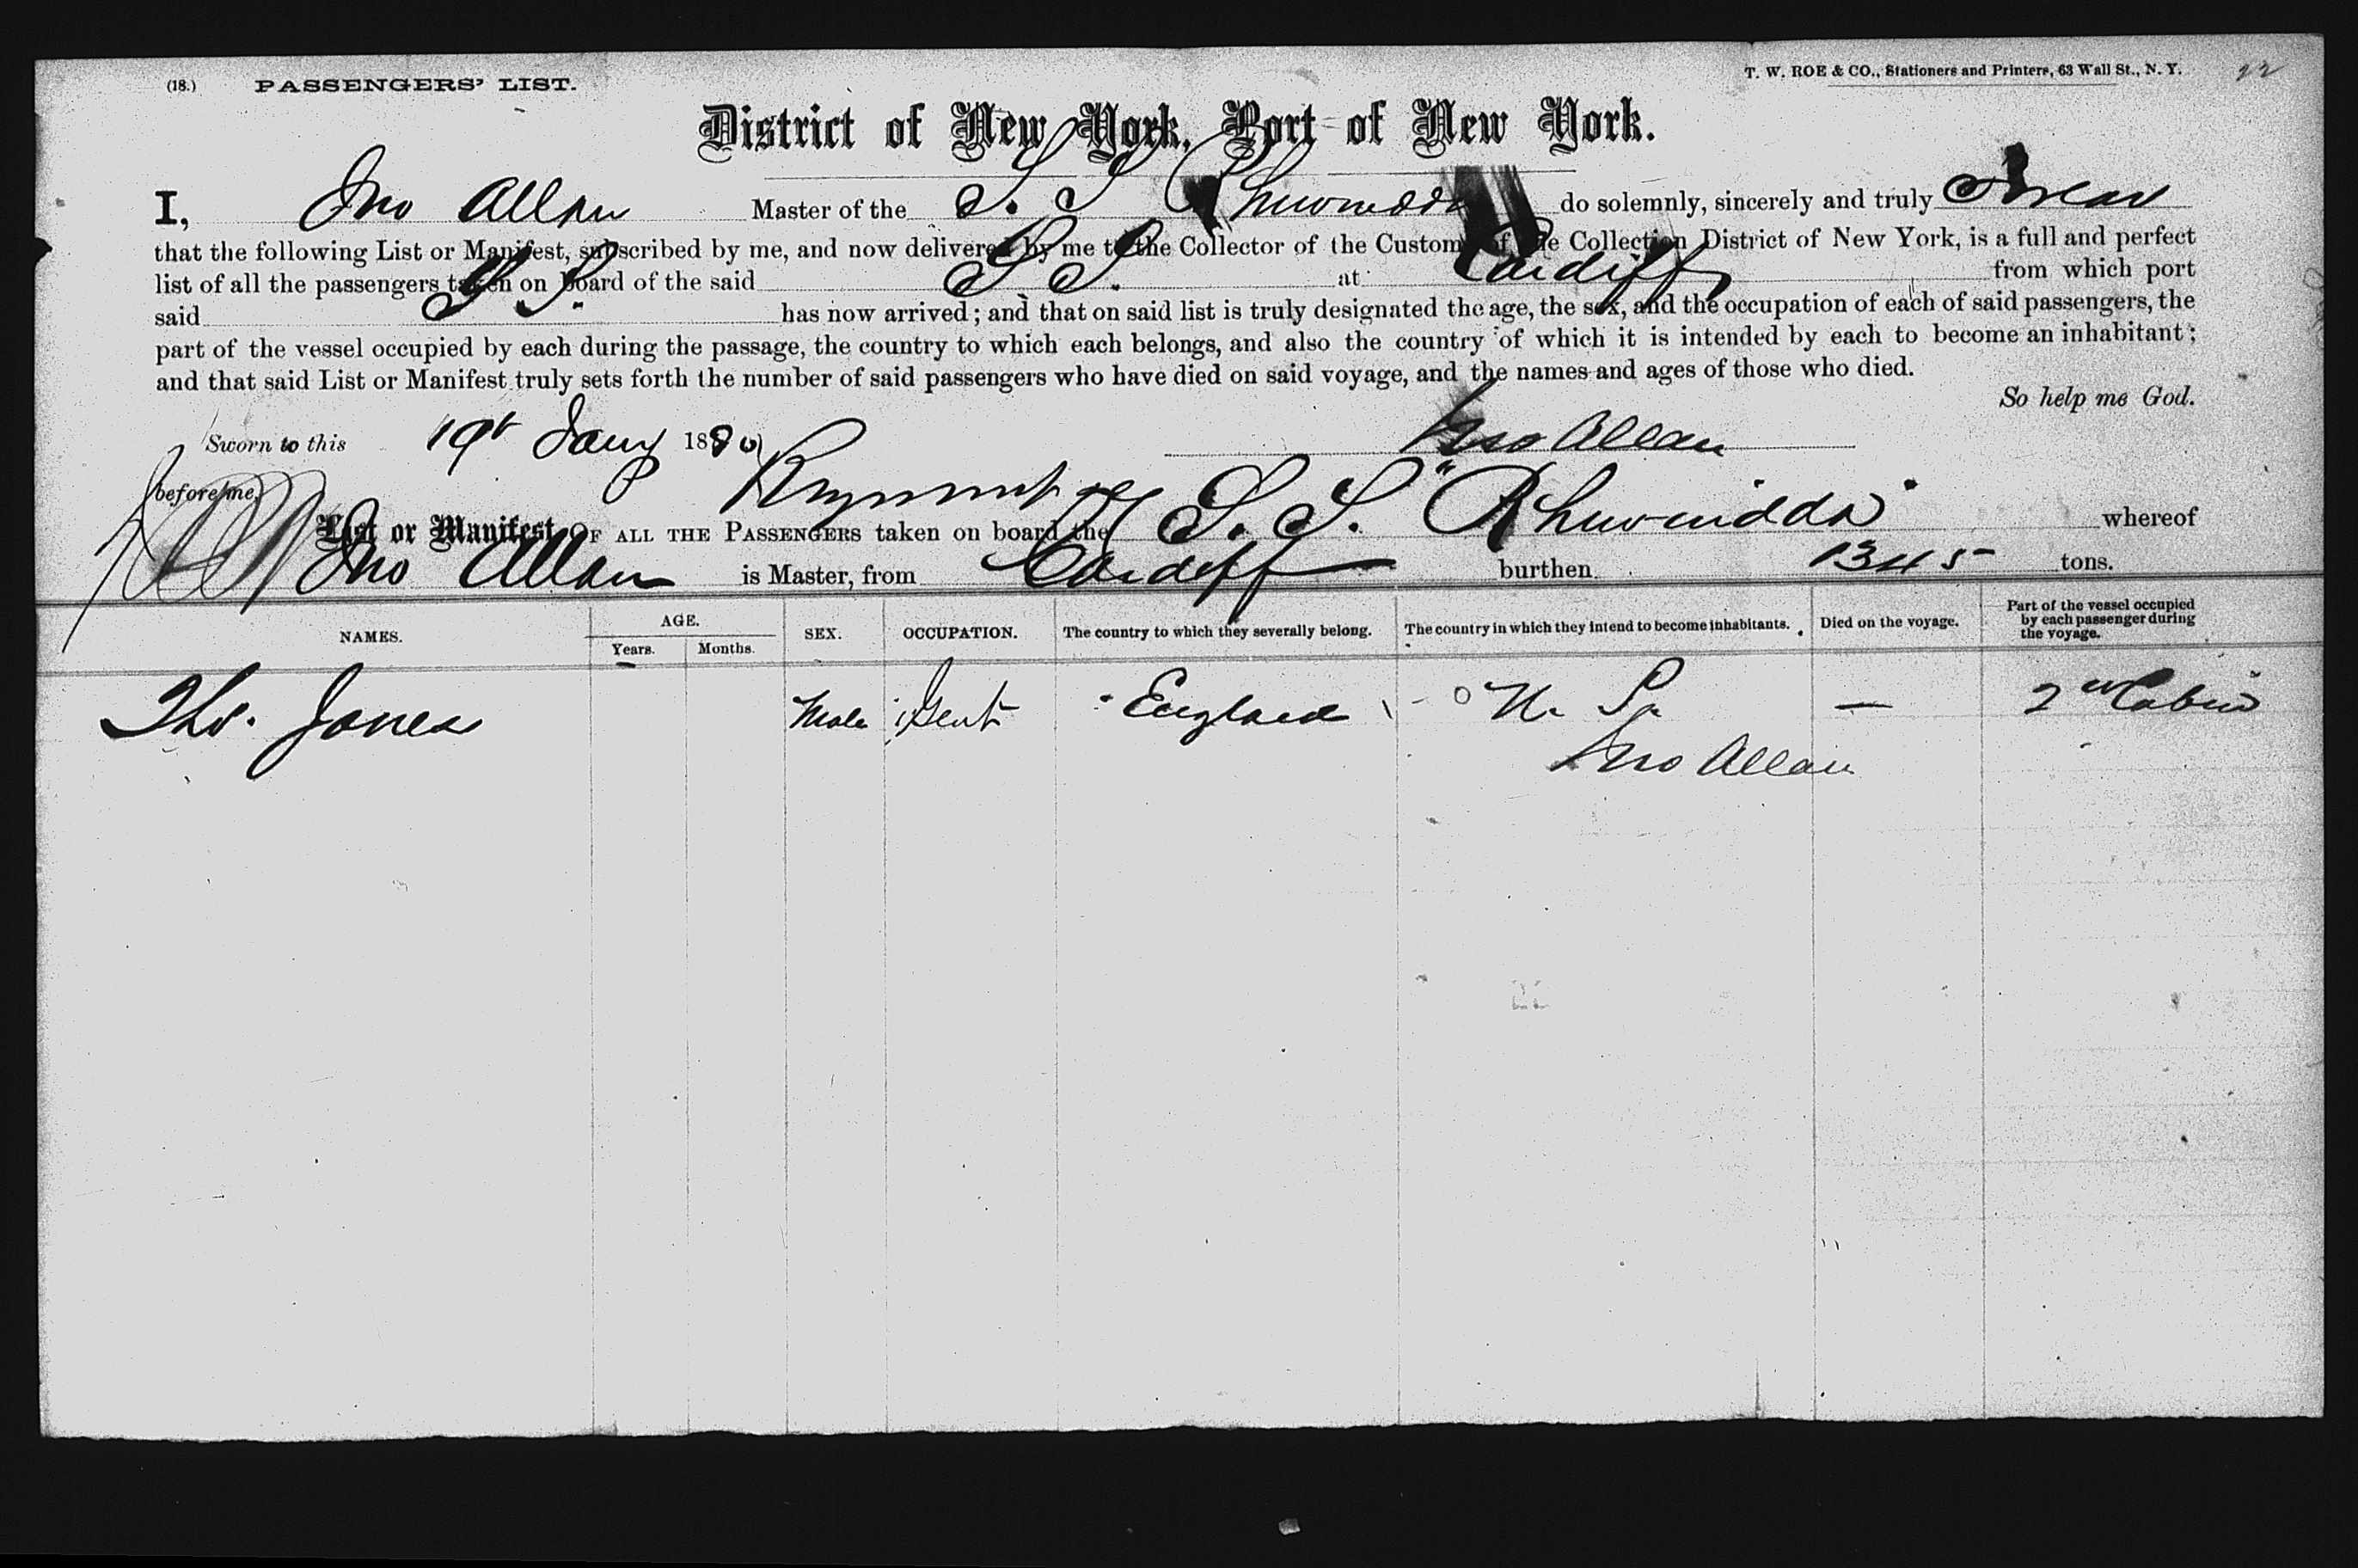 (18.) PASSENGERS' LIST. T. W. ROE & CO., Stationers and Printers, 63 Wall St., N. Y. 22
District of New York, Port of New York.
I, Jno Allan Master of the S. S. do solemnly, sincerely and truly Swear
that the following List or Manifest, subscribed by me, and now delivered by me to the Collector of the Customs of the Collection District of New York, is a full and perfect
list of all the passengers taken on board of the said S S. at Cardiff from which port
said S S. has now arrived; and that on said list is truly designated the age, the sex, and the occupation of each of said passengers, the
part of the vessel occupied by each during the passage, the country to which each belongs, and also the country of which it is intended by each to become an inhabitant;
and that said List or Manifest truly sets forth the number of said passengers who have died on said voyage, and the names and ages of those who died.
So help me God.
Sworn to this 19th Jany 1880 Jno Allan
before me,
List or Manifest OF ALL THE PASSENGERS taken on board the S. S. whereof
Jno Allan is Master, from Cardiff burthen 1345 tons.
NAMES. AGE. Years. Months. SEX. OCCUPATION. The country to which they severally belong. The country in which they intend to become inhabitants. Died on the voyage. Part of the vessel occupied by each passenger during the voyage.
Thos. Jones Male Gent England U. S. — 2nd Cabin
Jno Allan